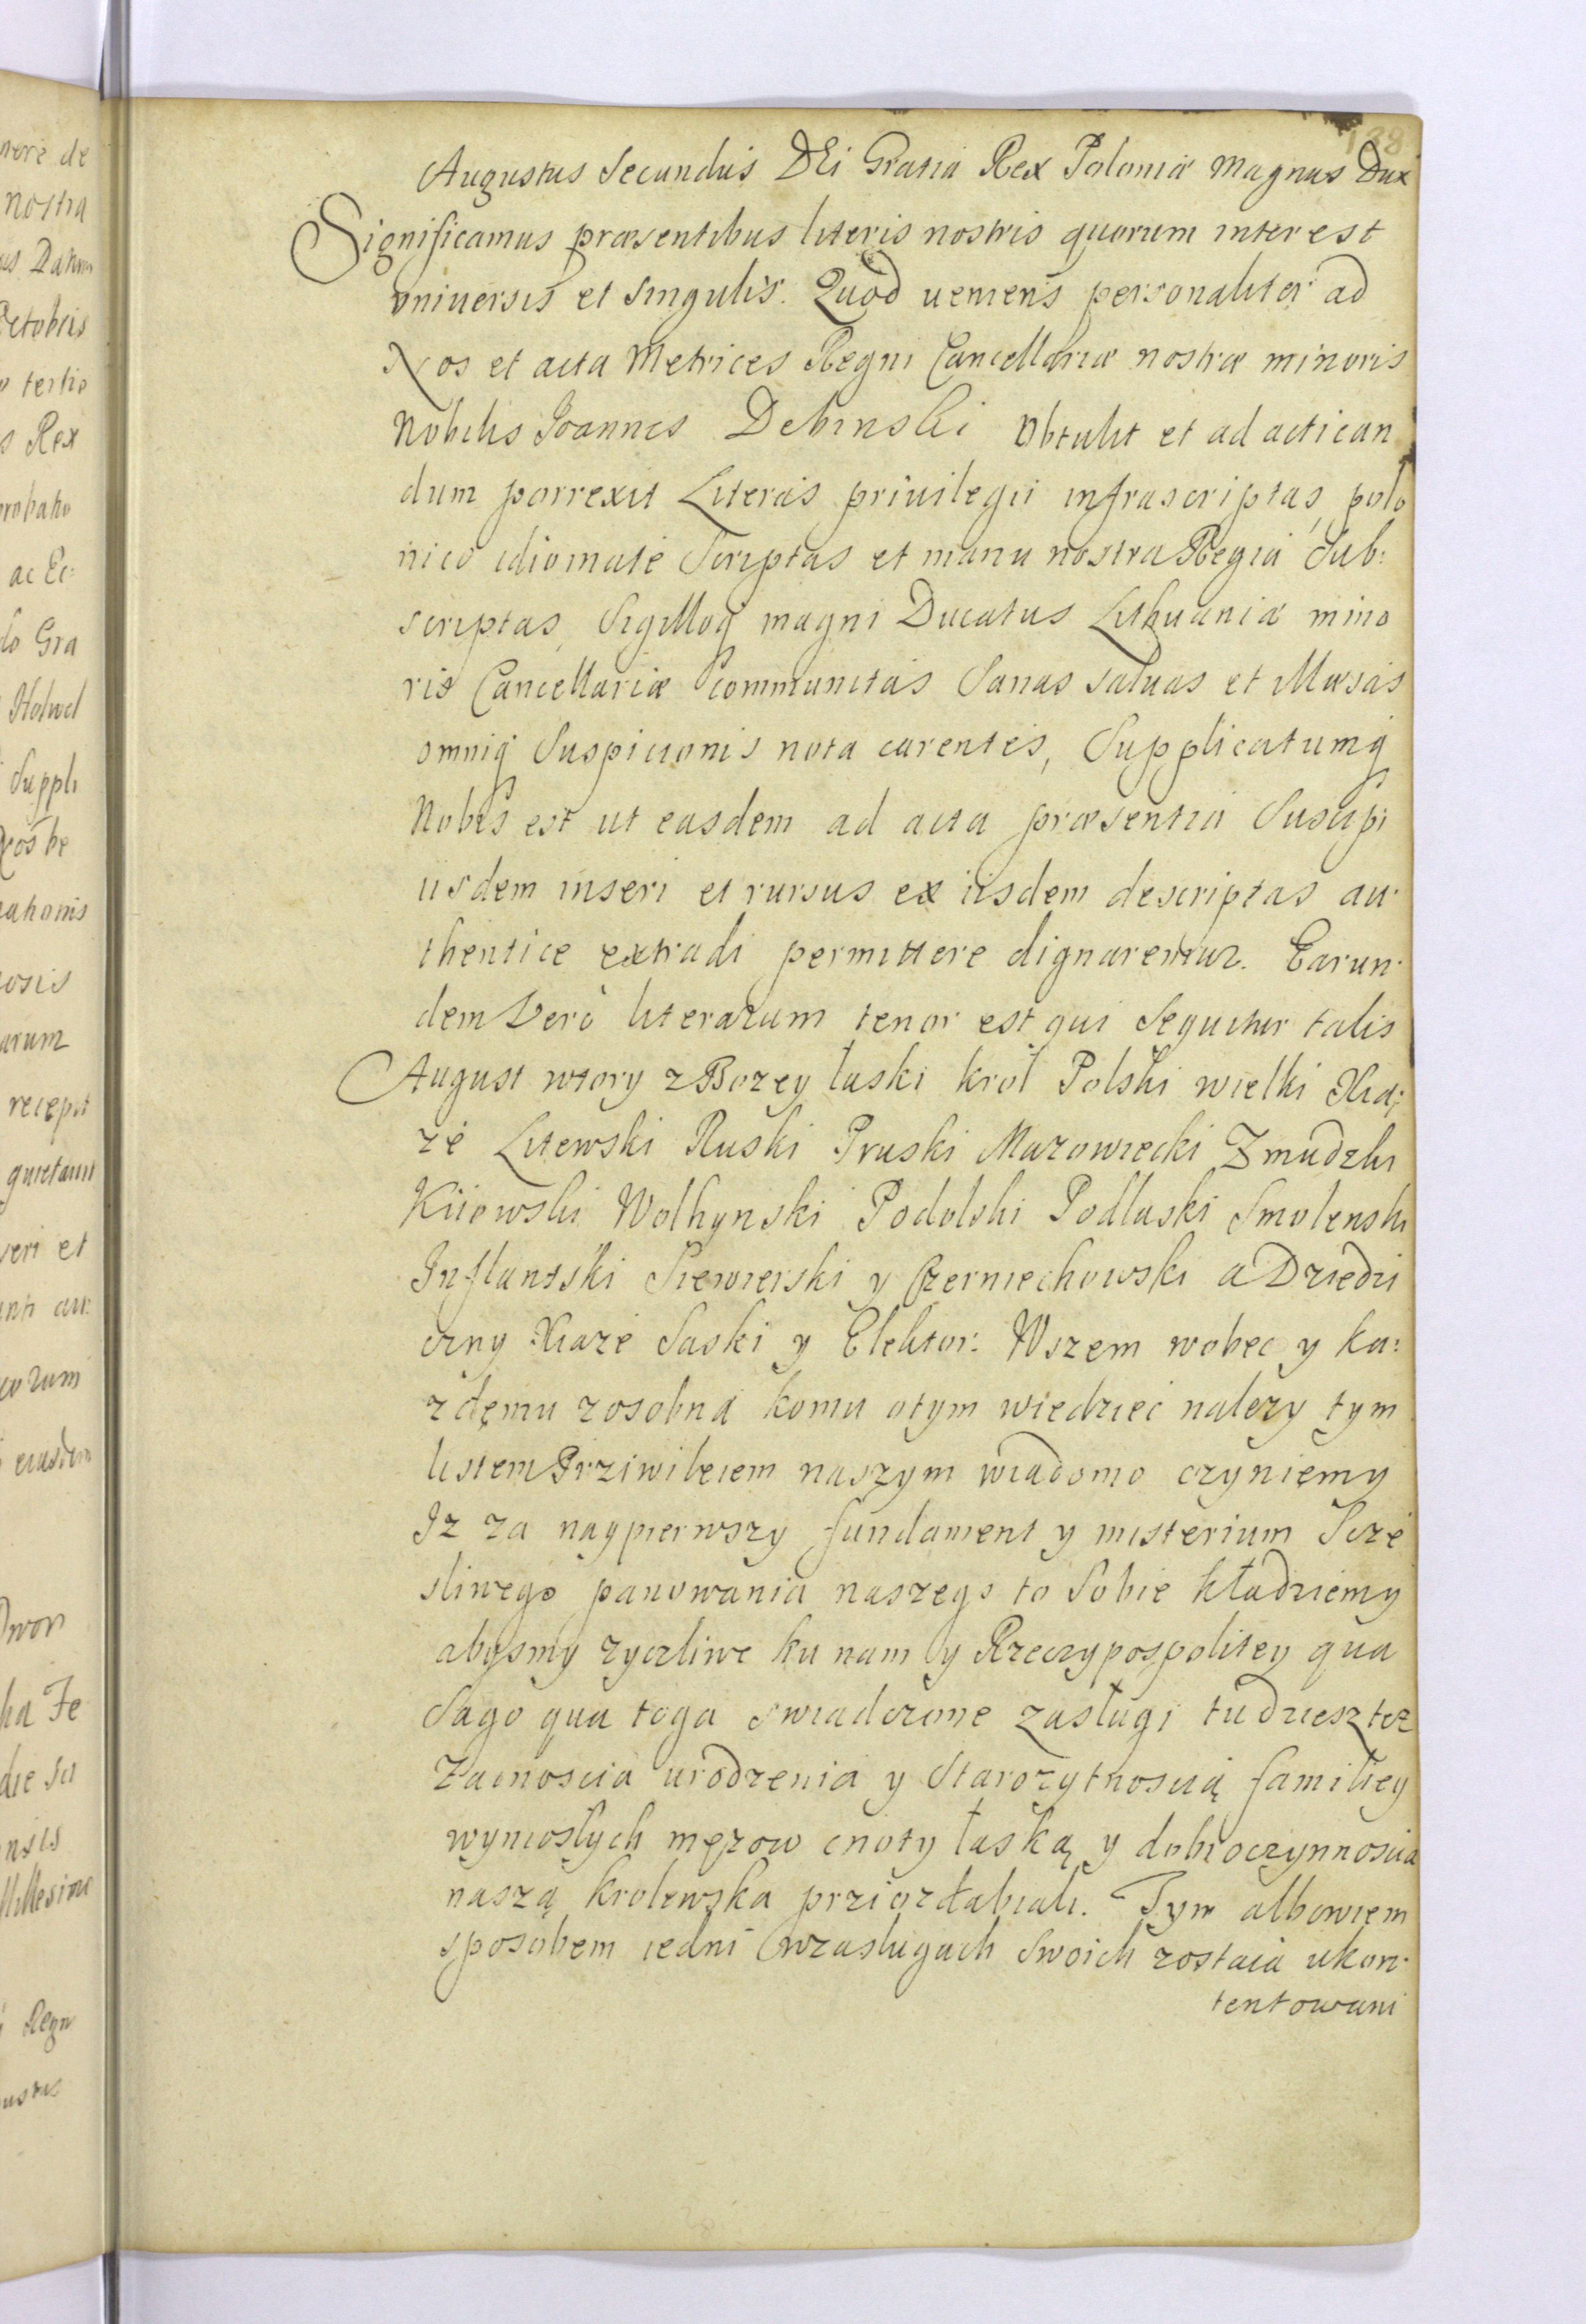 138
Augustus Secundus DEi Gratia Rex Poloniæ Magnus Dux
Significamus præsentibus literis nostris quorum interest
vniuersis et singulis. Quod ueniens personaliter ad
Nos et acta Metrices Regni Cancellariæ nostræ minoris
Nobilis Joannes Debinski Obtulit et ad actican
dum porrexit Literas priuilegii infrascriptas, polo
nico idiomate Scriptas et manu nostra Regia Sub:
scriptas, Sigilloq magni Ducatus Lithuaniæ mino
ris Cancellariæ communitas Sanas saluas et Illæsas
omniq Suspicionis nota carentes, Supplicatumq
Nobis est ut easdem ad acta præsentia Suscipi
iisdem inseri et rursus ex iisdem descriptas au
thentice extradi permittere dignaremur. Earun
dem Vero literarum tenor est qui Sequitur talis
August wtory z Bozey łaski krol Polski wielki Xia;
ze Litewski Ruski Pruski Mazowiecki Zmudzki
Kiiowski Wolhynski Podolski Podlaski Smolenski
Inflantski Siewierski y Czerniechowski a Dziedzi
czny Xiaze Saski y Elektor. Wszem wobec y ka:
zdemu zosobna komu otym wiedziec nalezy tym
listem Prziwileiem naszym wiadomo czyniemy
Iz za naypierwszy fundament y misterium Szczę
sliwego panowania naszego to Sobie kładziemy
abysmy zyczliwe ku nam y Rzeczypospolitey qua
Sago qua toga swiadczone zasługi tudziesz tez
Zacnoscia urodzenia y Starozytnoscią familiey
wyniosłych męzow cnoty łaską y dobroczynnoscia
naszą krolewska prziozdabiali. Tym albowiem
sposobem iedni wzasługach Swoich zostaia ukon
tentowani